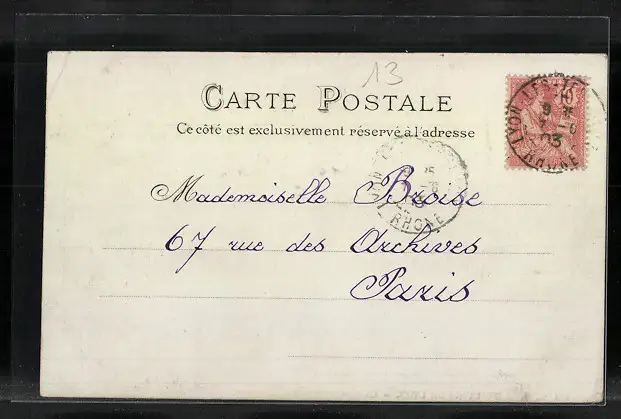 13
CARTE POSTALE
Ce côté est exclusivement réservé à l'adresse
LYON
03
RHONE
15
RHONE
Mademoiselle Broise
67 rue des Archives
Paris